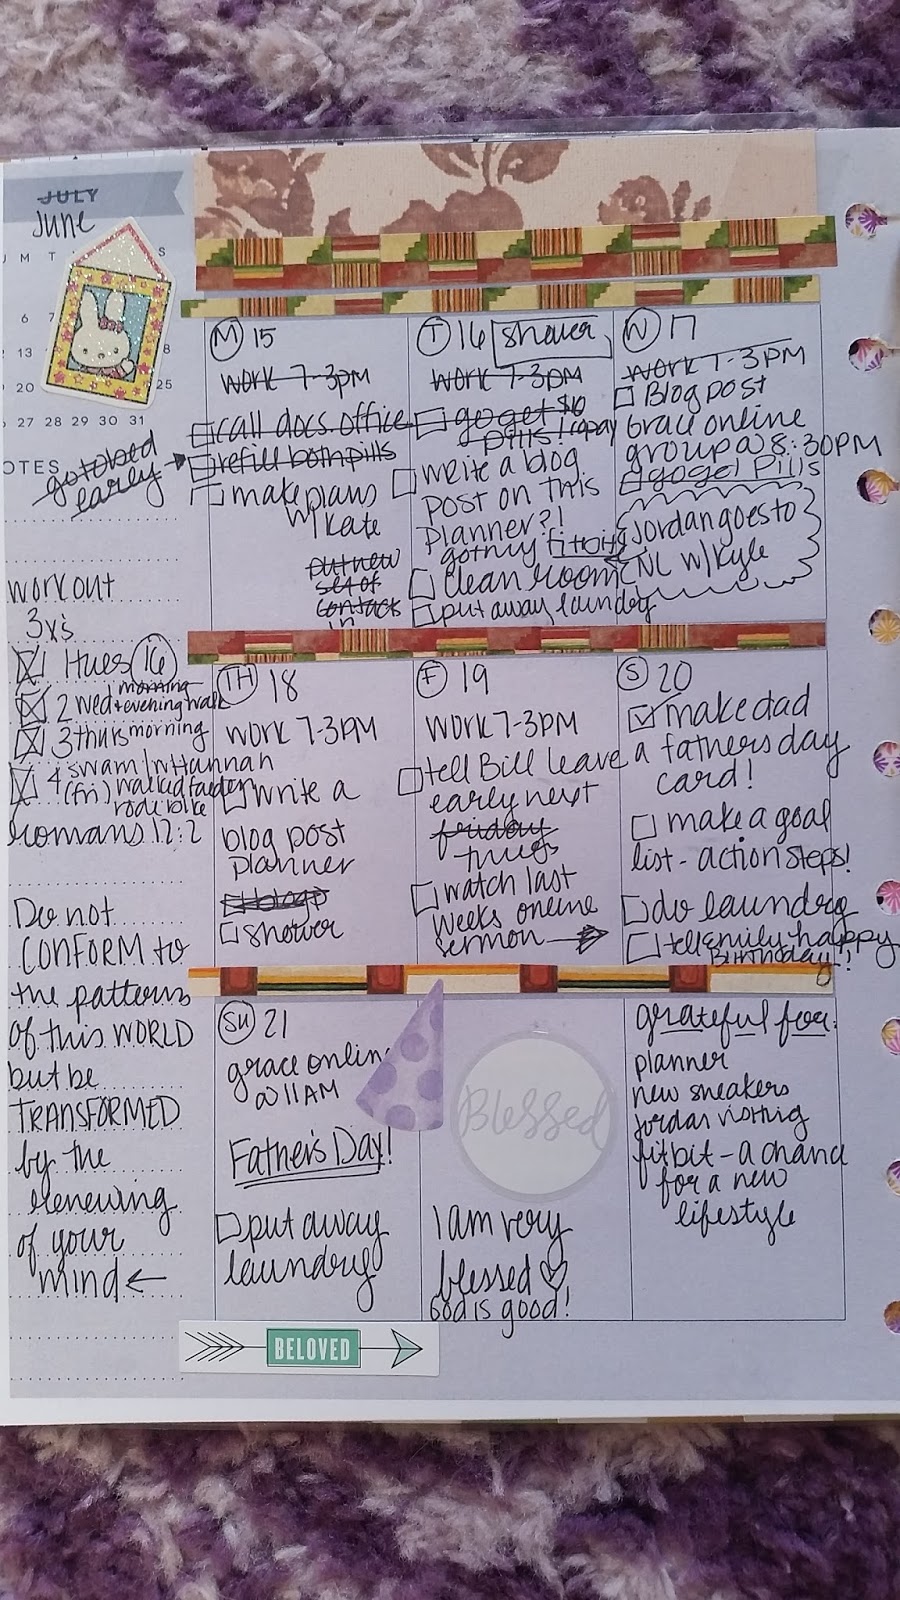 JULY
June
U M T S
6 7 8
13
20 25
27 28 29 30 31
OTES
go to bed
early →
work out
3xs
1 tues 16
morning
2 wed + evening walk
3 thurs morning
4 swam w Hannah
(fri) walked
rode bike
Romans 12:2
Do not
CONFORM to
the patterns
of this WORLD
but be
TRANSFORMED
by the
renewing
of your
mind ←
M 15
work 7-3pm
call docs office
refill both pills
make plans
w/ Kate
put new
set of
contacts
in
T 16 shower
work 7-3pm
go get $10
pills! copay
write a blog
post on this
planner?!
got my fitbit
clean room
put away laundry
W 17
work 7-3PM
Blog post
Grace online
group @ 8:30PM
go get Pills
Jordan goes to
NL w/ Kyle
TH 18
work 7-3PM
write a
blog post
planner
blog
shower
F 19
work 7-3PM
tell Bill leave
early next
friday
thurs
watch last
weeks online
sermon →
S 20
make dad
a fathers day
card!
make a goal
list - action steps!
do laundry
tell Emily happy
Birthday!!
SU 21
grace online
@ 11AM
Father's Day!
put away
laundry
Blessed
I am very
blessed ♡
God is good!
grateful for:
planner
new sneakers
jordan visiting
fitbit - a chance
for a new
lifestyle
BELOVED